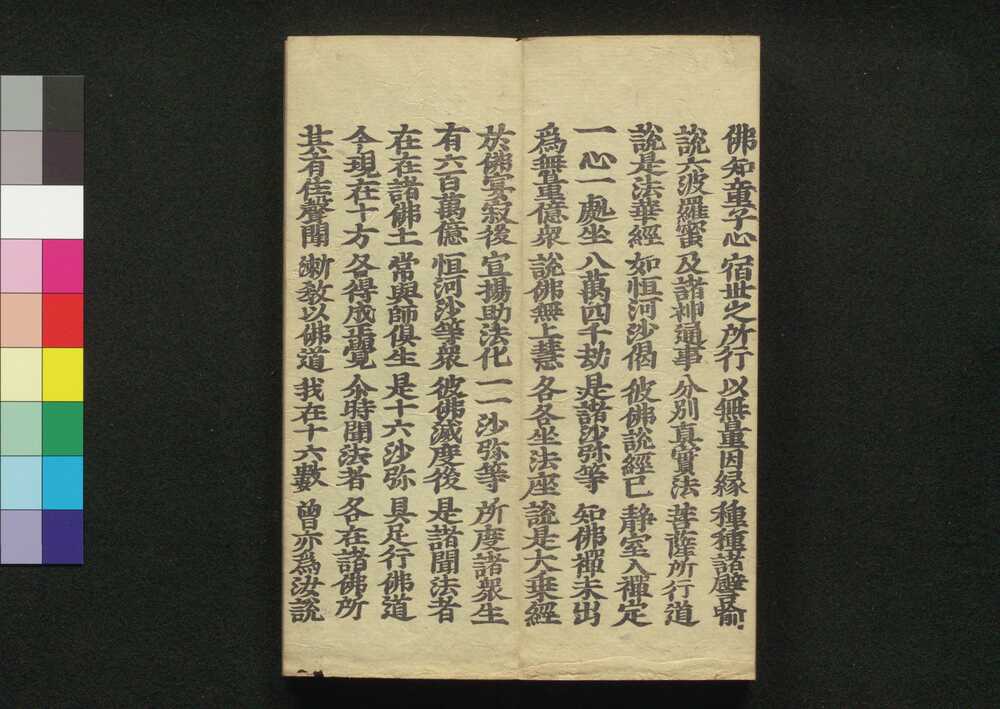 佛知童子心 宿世之所行 以無量因縁 種種諸譬喻
說六波羅蜜 及諸神通事 分別真實法 菩薩所行道
說是法華經 如恒河沙偈 彼佛說經已 静室入禪定
一心一處坐 八萬四千劫 是諸沙弥等 知佛禪未出
為無量億衆 說佛無上慧 各各坐法座 說是大乗經
於佛宴寂後 宣揚助法化 一一沙弥等 所度諸衆生
有六百萬億 恒河沙等衆 彼佛滅度後 是諸聞法者
在在諸佛土 常與師俱生 是十六沙弥 具足行佛道
今現在十方 各得成正覺 尒時聞法者 各在諸佛所
其有住聲聞 漸教以佛道 我在十六數 曾亦為汝說